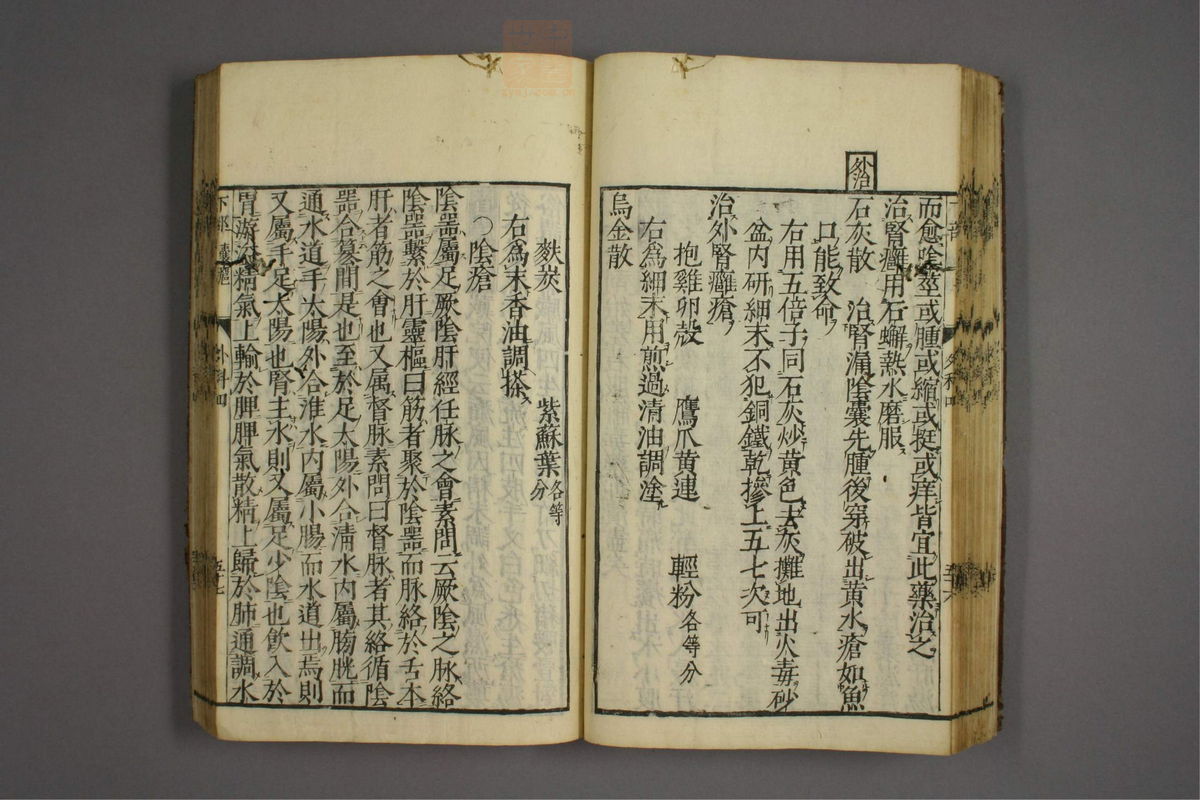 外治
而愈陰莖或腫或縮或挺或痒皆宜此藥治之
治腎癰用石蠏熱水磨服
石灰散 治腎漏陰囊先腫後穿破出黄水瘡如魚
口能致命
右用五倍子同石灰炒黄色去灰攤地出火毒砂
盆内研細末不犯銅鐵乾摻上五七次可
治外腎癰瘡
抱雞卵殼 鷹爪黄連 輕粉各等分
右爲細末用煎過清油調塗
烏金散
麩炭 紫蘇葉各等分
右爲末香油調搽
○陰瘡
陰器屬足厥陰肝經任脉之會素問云厥陰之脉絡
陰器繫於肝靈樞曰筋者聚於陰器而脉絡於舌本
肝者筋之會也又属督脉素問曰督脉者其絡循陰
器合篡間是也至於足太陽外合清水内屬膀胱而
通水道手太陽外合淮水内屬小腸而水道出焉則
又屬手足太陽也腎主水則又屬足少陰也飲入於
胃游溢精氣上輸於脾脾氣散精上歸於肺通調水
下部 外科四 五十七
外科四